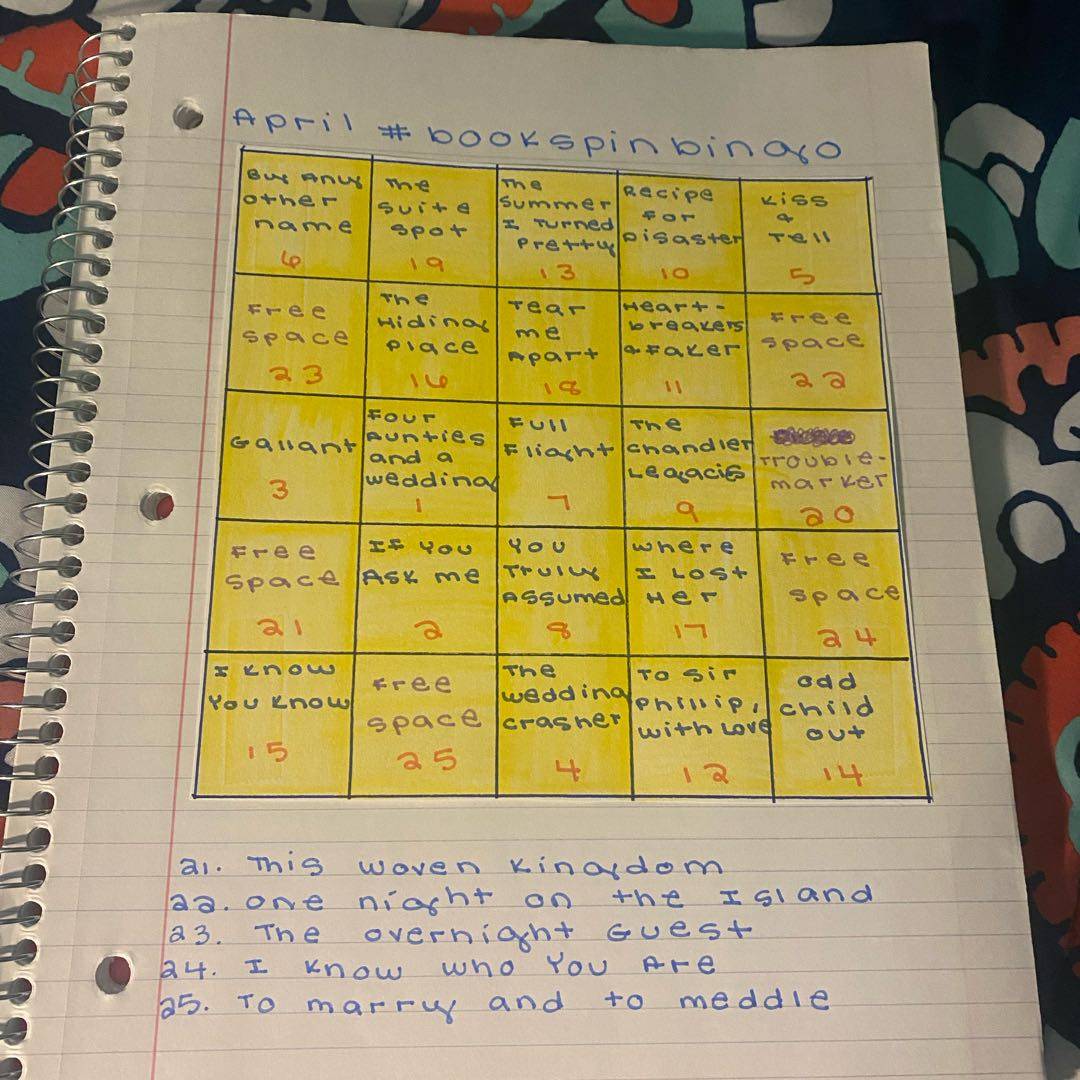 April #bookspinbingo
Buy Any
other
name
6
The
suite
spot
19
The
summer
I Turned
pretty
13
Recipe
For
Disaster
10
Kiss
&
Tell
5
Free
space
23
The
Hiding
place
16
Tear
me
Apart
18
Heart-
breakers
&Faker
11
Free
space
22
Gallant
3
Four
Aunties
and a
wedding
1
Full
Flight
7
The
chandler
Legacies
9
Trouble-
marker
20
Free
space
21
If You
Ask me
2
You
Truly
Assumed
8
where
I Lost
Her
17
Free
space
24
I know
You know
15
Free
space
25
The
wedding
crasher
4
To Sir
phillip,
with Love
12
odd
child
out
14
21. This woven kingdom
22. one night on the Island
23. The overnight Guest
24. I know who You Are
25. To marry and to meddle